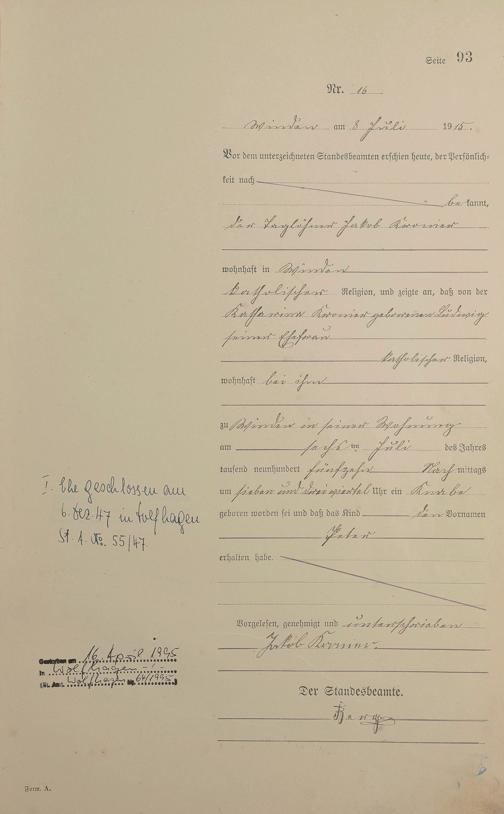 Seite 93
Nr. 16
Winden am 8 Juli 1915.
Vor dem unterzeichneten Standesbeamten erschien heute, der Persönlich-
keit nach
be kannt,
der Taglöhner Jakob Kromer
wohnhaft in Winden
katholischer Religion, und zeigte an, daß von der
Katharina Kromer geborenen Ludwig
seiner Ehefrau
katholischer Religion,
wohnhaft bei ihm
zu Winden in seiner Wohnung
am sechs ten Juli des Jahres
tausend neunhundert fünfzehn Nach mittags
um sieben und dreiviertel Uhr ein Knabe
geboren worden sei und daß das Kind den Vornamen
Peter
erhalten habe.
Vorgelesen, genehmigt und unterschrieben
Jakob Kromer.
Der Standesbeamte.
I. Ehe geschlossen am
6. Dez. 47 in Wolfhagen
St. A. No. 55/47.
Gestorben am 16. April 1995
in Wolfhagen
(St. Amt Wolfhagen Nr. 64/1995)
Form. A.